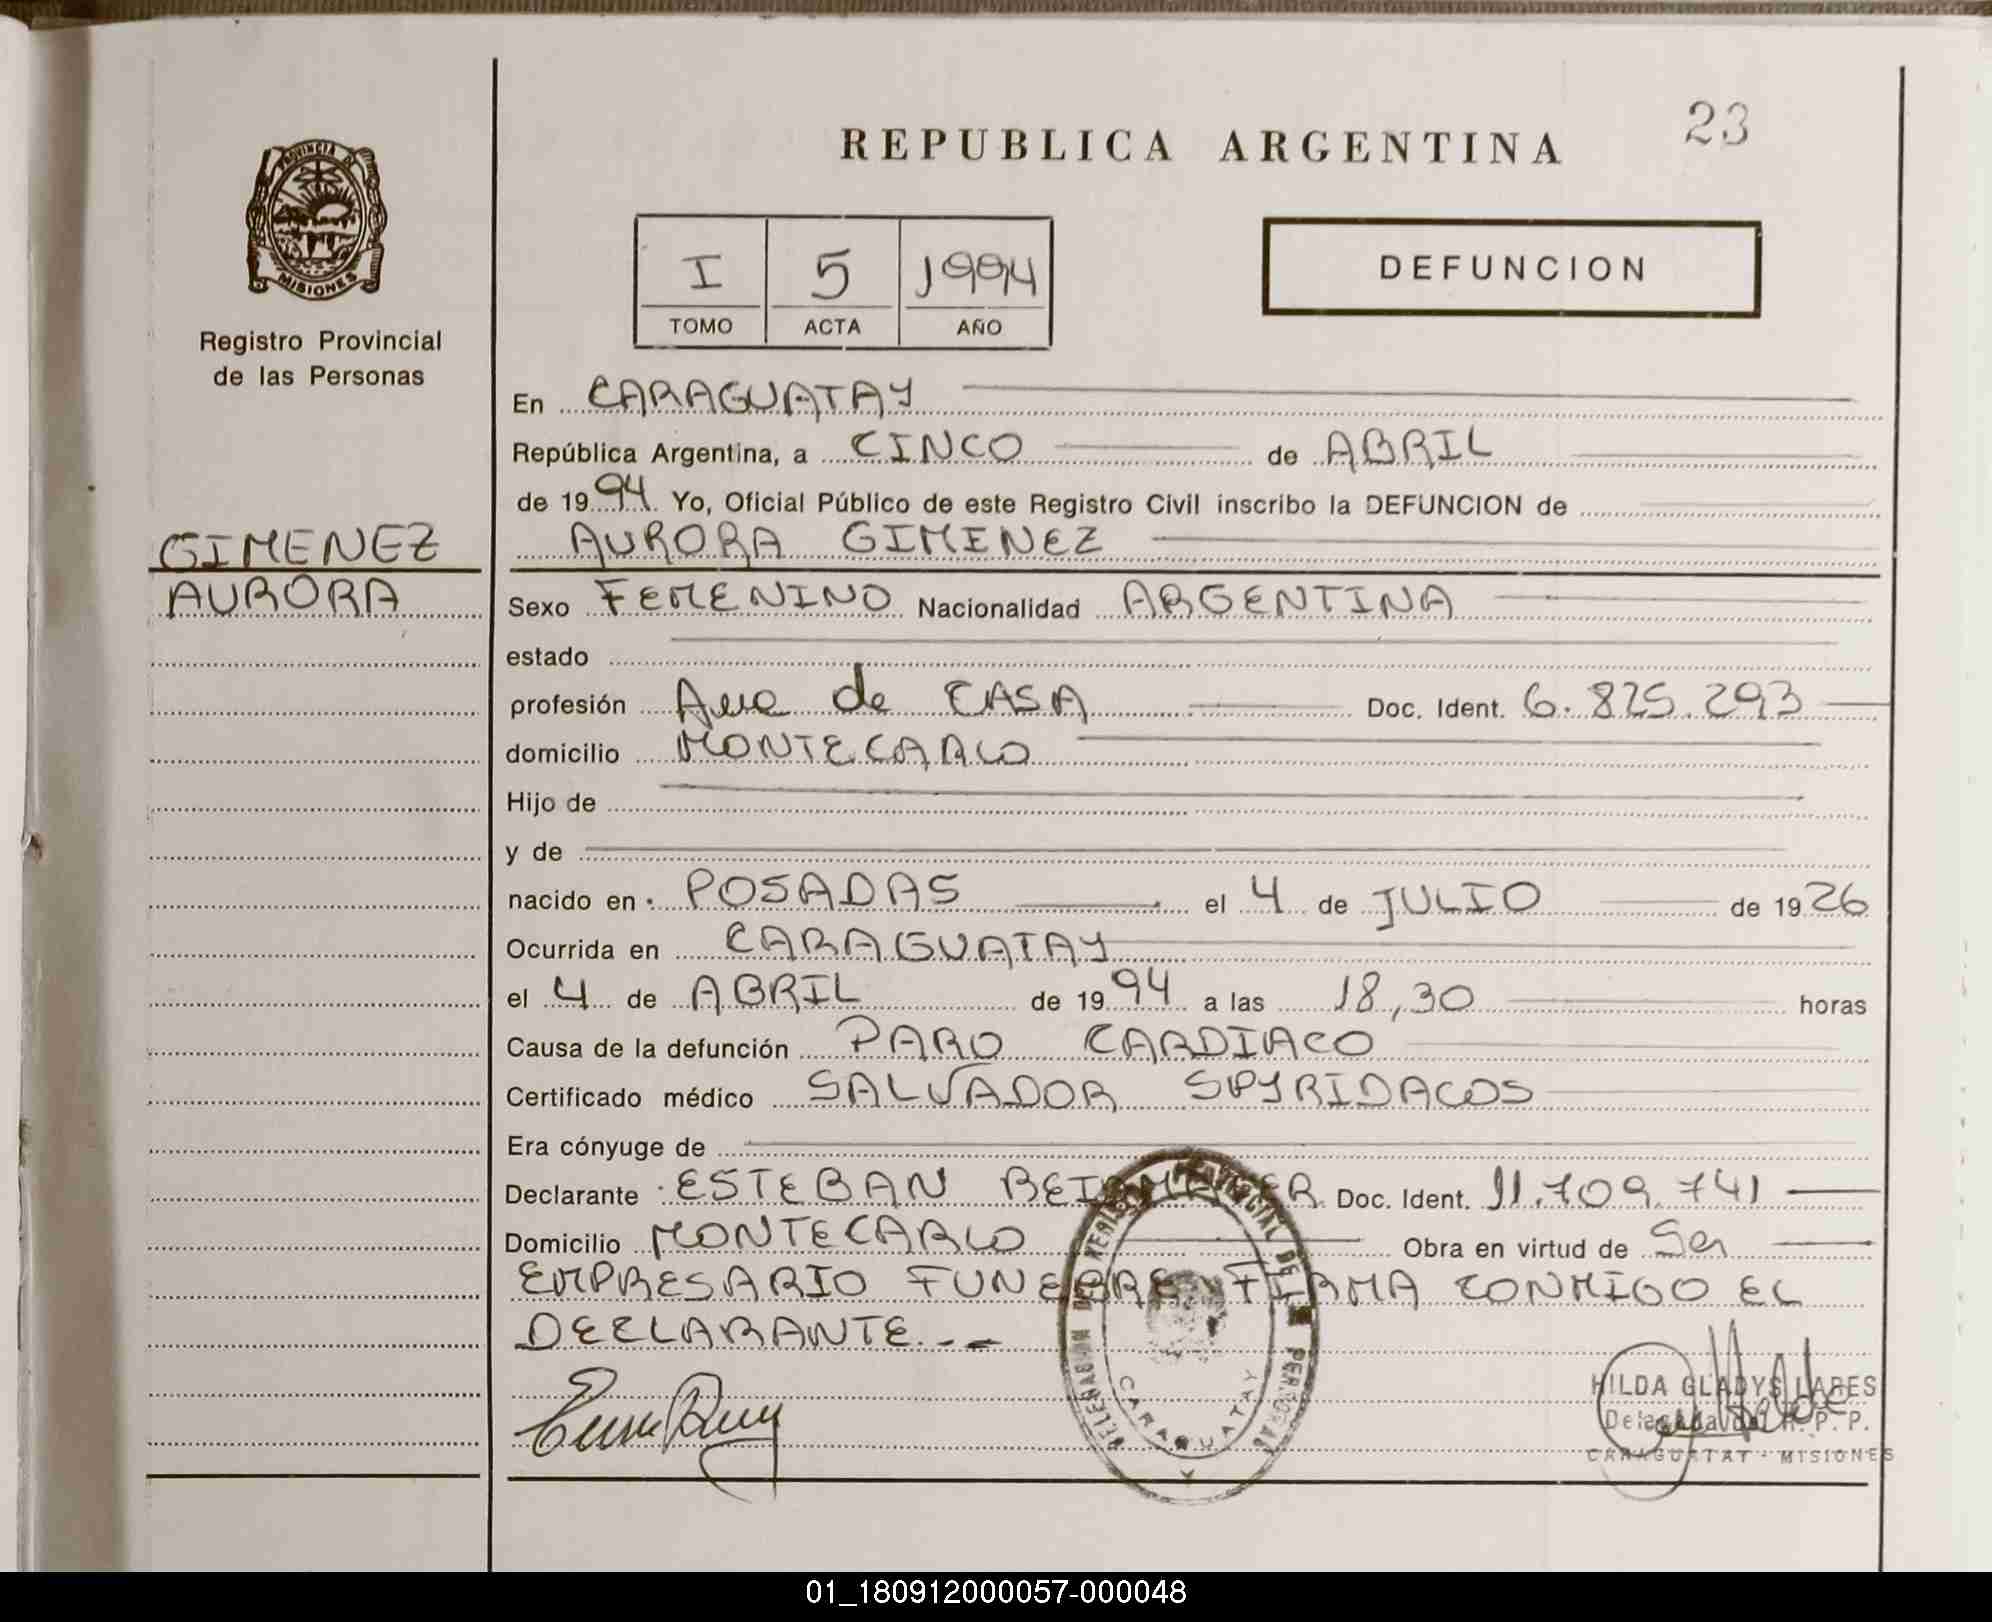 23
REPUBLICA ARGENTINA
PROVINCIA DE
MISIONES
Registro Provincial
de las Personas
I 5 1994
TOMO ACTA AÑO
DEFUNCION
En CARAGUATAY
República Argentina, a CINCO de ABRIL
de 1994 Yo, Oficial Público de este Registro Civil inscribo la DEFUNCION de
AURORA GIMENEZ
GIMENEZ
AURORA
Sexo FEMENINO Nacionalidad ARGENTINA
estado
profesión Ama de CASA Doc. Ident. 6.825.293
domicilio MONTECARLO
Hijo de
y de
nacido en POSADAS el 4 de JULIO de 1926
Ocurrida en CARAGUATAY
el 4 de ABRIL de 1994 a las 18,30 horas
Causa de la defunción PARO CARDIACO
Certificado médico SALVADOR SPYRIDACOS
Era cónyuge de
Declarante ESTEBAN Doc. Ident. 11.709.741
Domicilio MONTECARLO Obra en virtud de Ser
EMPRESARIO FUNEBRE FIRMA CONMIGO EL
DECLARANTE.--
CARAGUATAY
HILDA GLADYS
Delegada del R.P.P.
CARAGUATAY - MISIONES
01_180912000057-000048